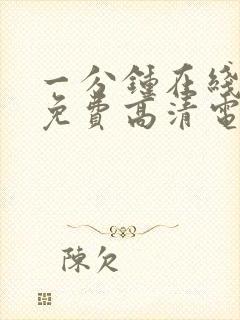 一分鍾在綫
免費高清電
陳欠